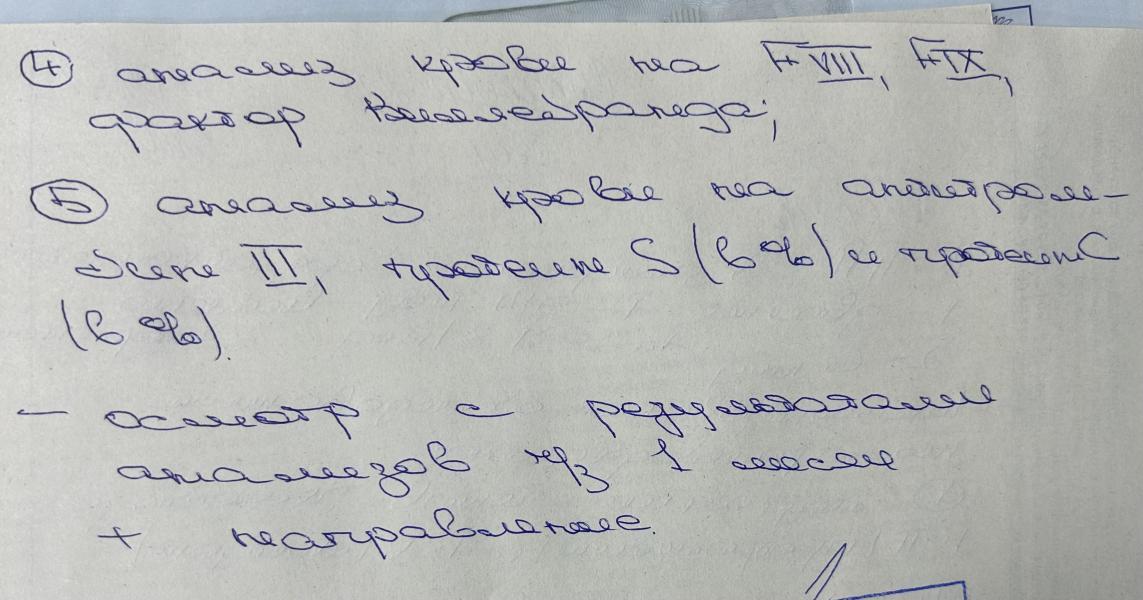 ④ анализ крови на F-VIII, F-IX,
фактор Виллебранда;
⑤ анализ крови на антитром-
бин III, протеин S (в %) и протеин C
(в %).
– осмотр с результатами
анализов ч/з 1 месяц
+ направление.